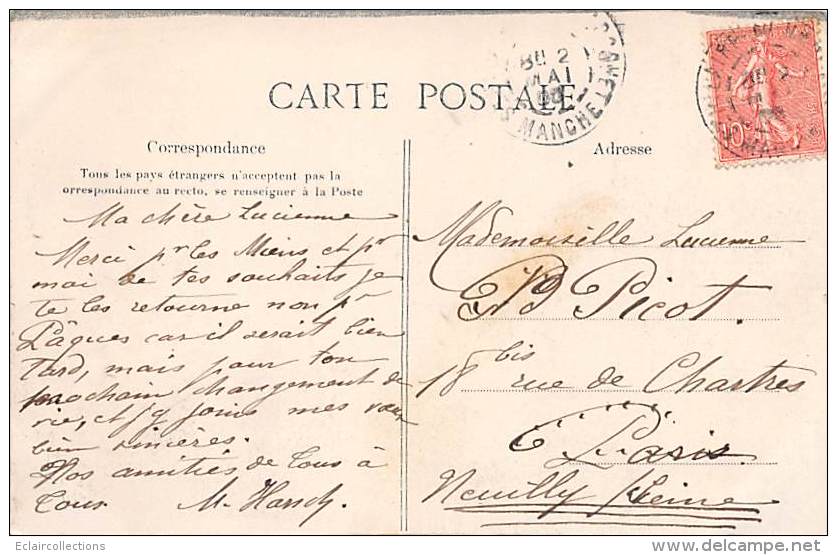 CARTE POSTALE
Correspondance
Tous les pays étrangers n'acceptent pas la
orrespondance au recto, se renseigner à la Poste
Ma chère Lucienne
Merci pr les Miens et pr
moi de tes souhaits je
te les retourne non pr
Pâques car il serait bien
tard, mais pour ton
prochain changement de
vie, et j'y joins mes vœux
bien sincères.
Nos amitiés de tous à
tous. M. Harsch.
BU 2
MAI
MANCHE
10c
Adresse
Mademoiselle Lucienne
Picot.
18 bis rue de Chartres
Paris
Neuilly s/Seine
Eclaircollections
www.delcampe.net